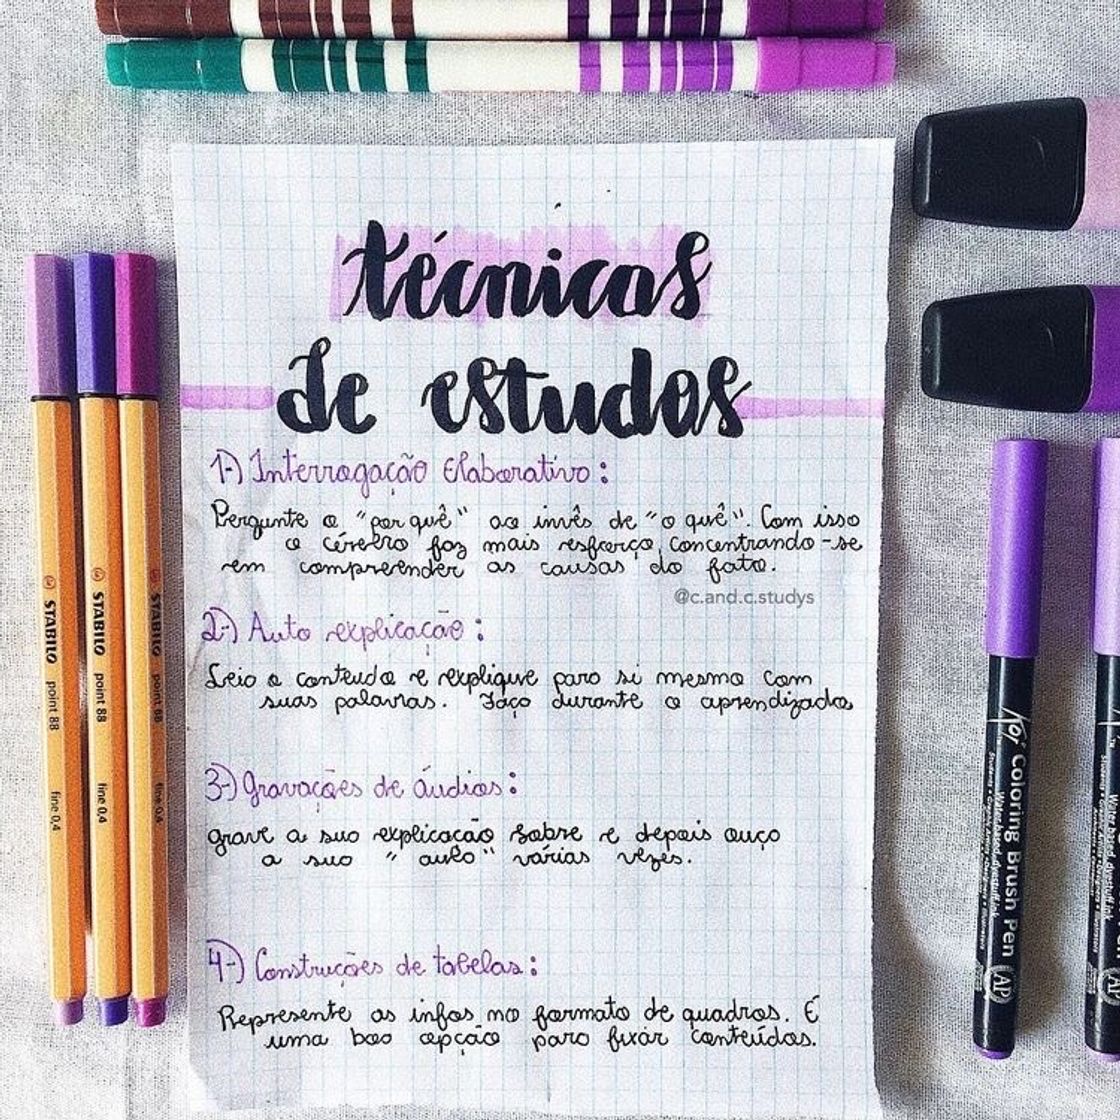 técnicas
de estudos
1-) Interrogação Elaborativa:
Pergunte o "por quê" ao invês de "o quê". Com isso
o cérebro faz mais esforço, concentrando-se
em compreender as causas do fato.
@c.and.c.studys
2-) Auto explicação:
Leia o conteudo e explique para si mesmo com
suas palavras. Faça durante o aprendizado
3-) Gravações de áudios:
Grave a sua explicação sobre e depois ouça
a sua "aula" várias vezes.
4-) Construções de tabelas:
Represente as infos no formato de quadros. É
uma boa opção para fixar conteúdos.
STABILO point 88 fine 0,4
STABILO point 88 fine 0,4
STABILO point 88 fine 0,4
Coloring Brush Pen
AP